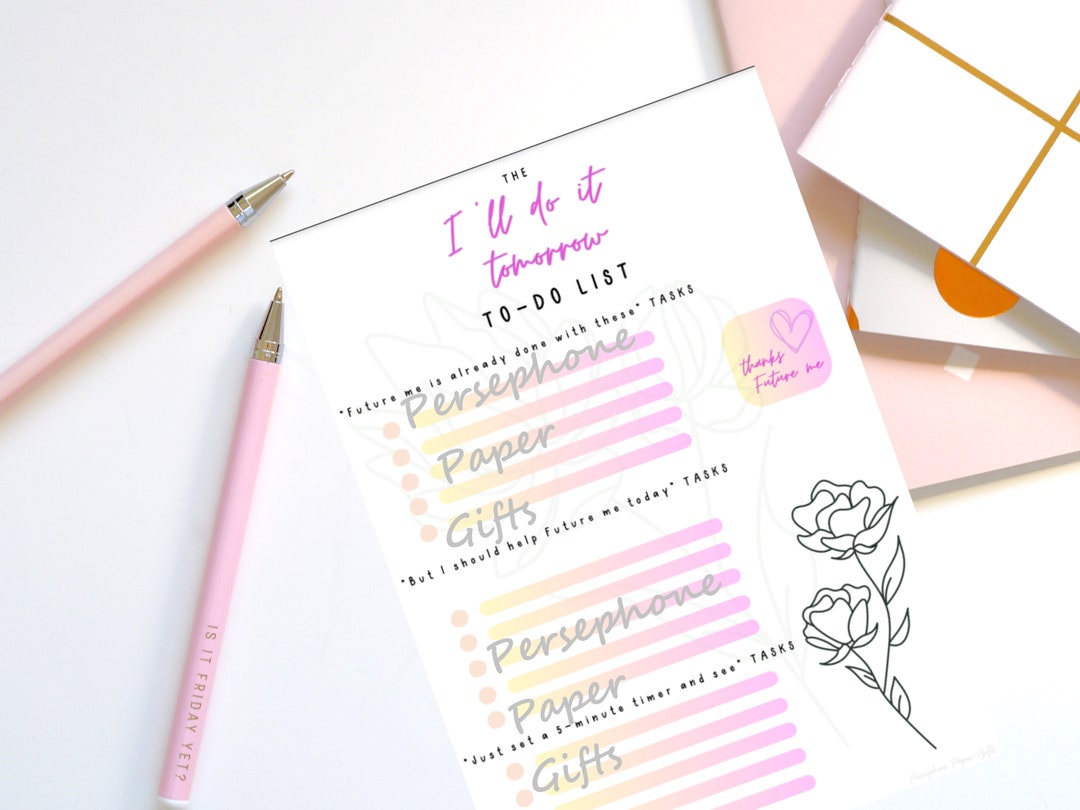 THE
I'll do it
tomorrow
TO-DO LIST
"Future me is already done with these" TASKS
Persephone
Paper
Gifts
thanks
Future me
"But I should help Future me today" TASKS
Persephone
Paper
Gifts
"Just set a 5-minute timer and see" TASKS
Persephone Paper Gifts
IS IT FRIDAY YET?